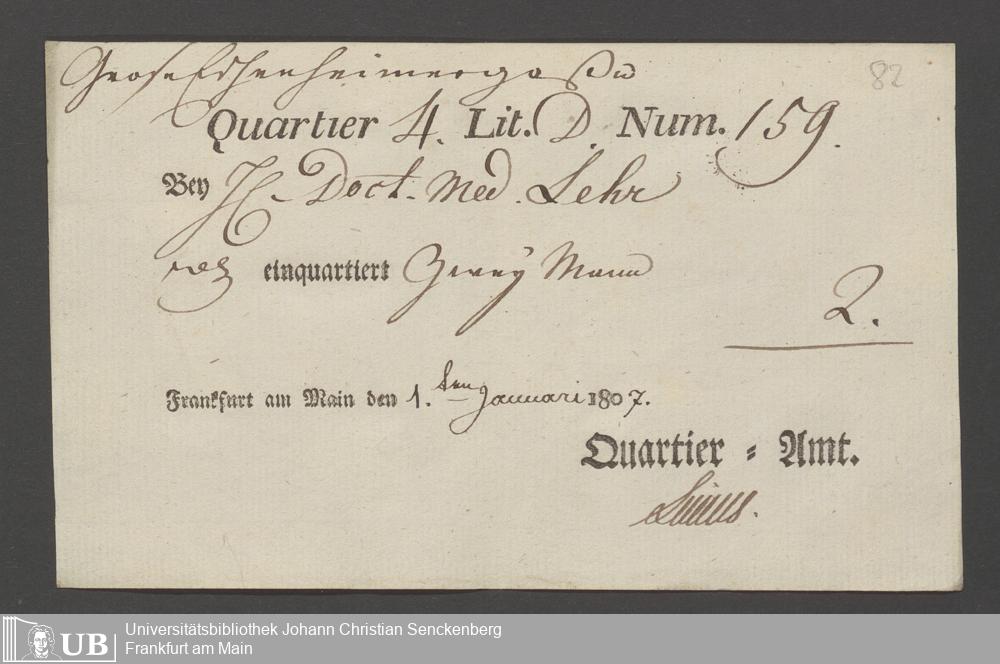 Grose Eschenheimergaße
82
Quartier 4. Lit. D. Num. 159.
Bey H. Doct. Med. Lehr
einquartiert Zwey Mann
2.
Frankfurt am Main den 1.ten Januari 1807.
Quartier = Amt.
UB Universitätsbibliothek Johann Christian Senckenberg
Frankfurt am Main